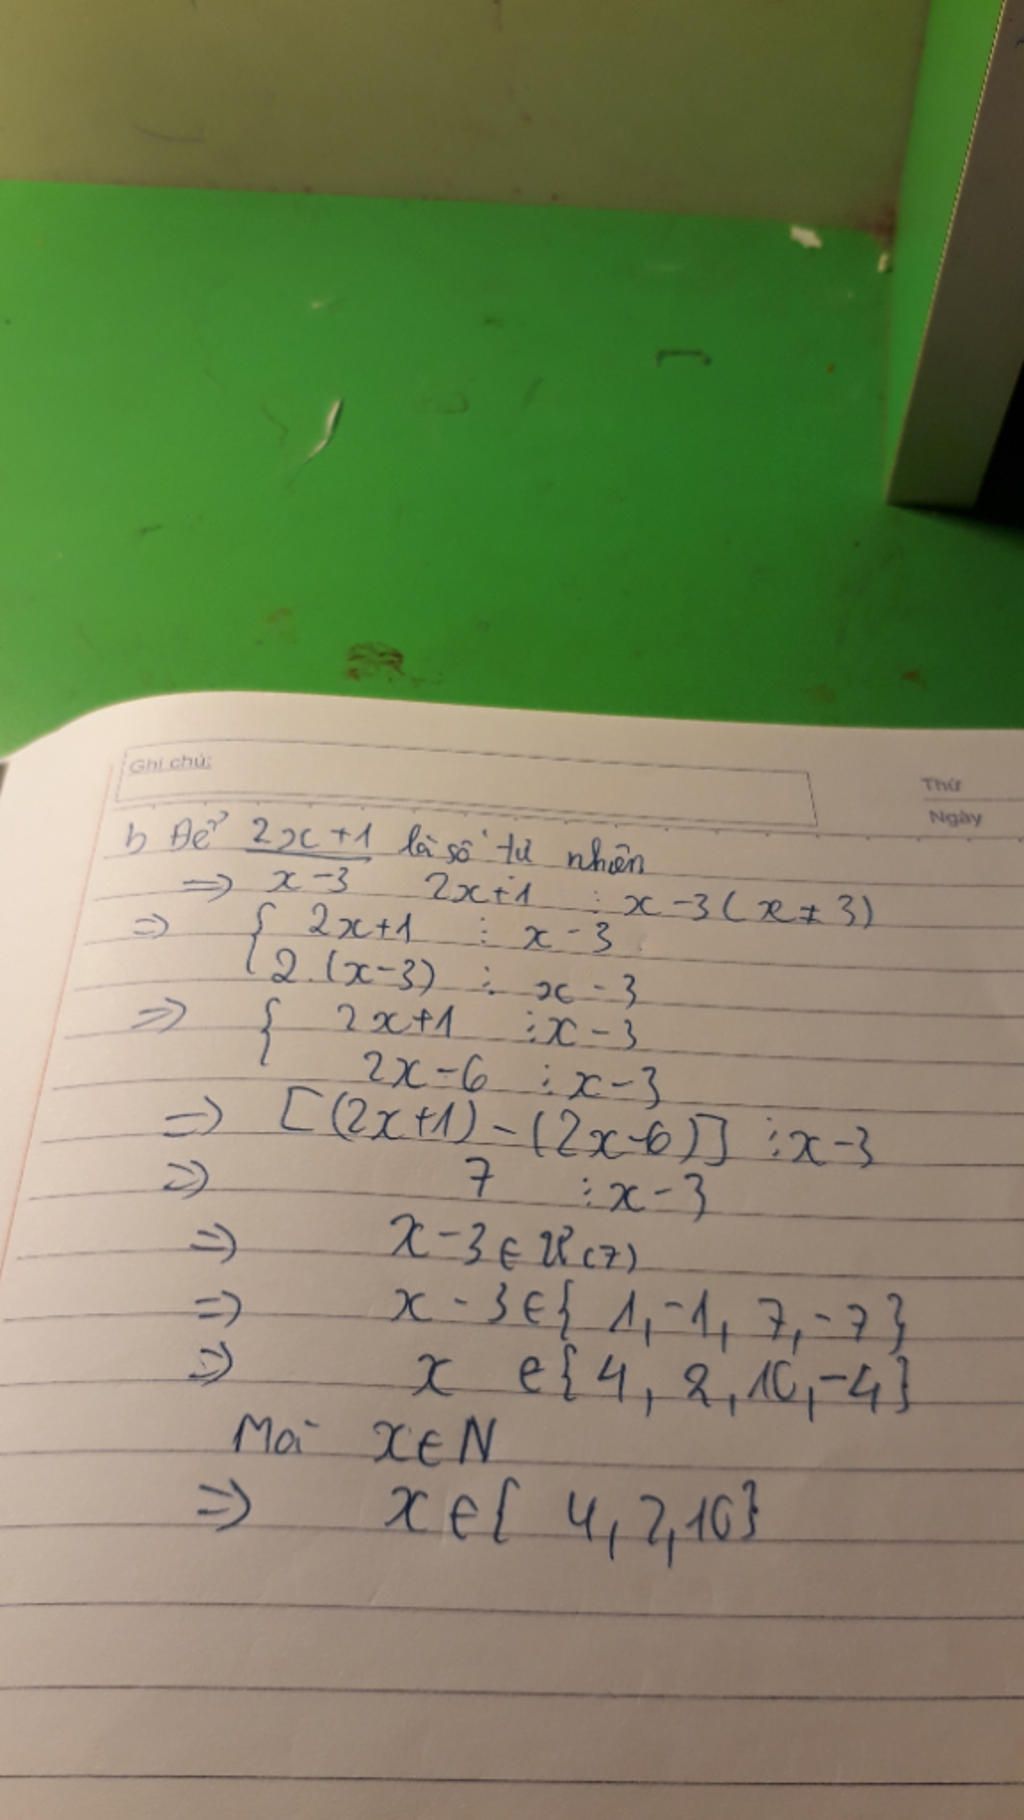 Ghi chú:
Thứ
Ngày
b Để 2x+1/x-3 là số tự nhiên
=> 2x+1 ⋮ x-3 (x≠3)
=> { 2x+1 ⋮ x-3
2.(x-3) ⋮ x-3
=> { 2x+1 ⋮ x-3
2x-6 ⋮ x-3
=> [(2x+1)-(2x-6)] ⋮ x-3
=> 7 ⋮ x-3
=> x-3 ∈ Ư(7)
=> x-3 ∈ { 1, -1, 7, -7}
=> x ∈ {4, 2, 10, -4}
Mà x ∈ N
=> x ∈ { 4, 2, 10}